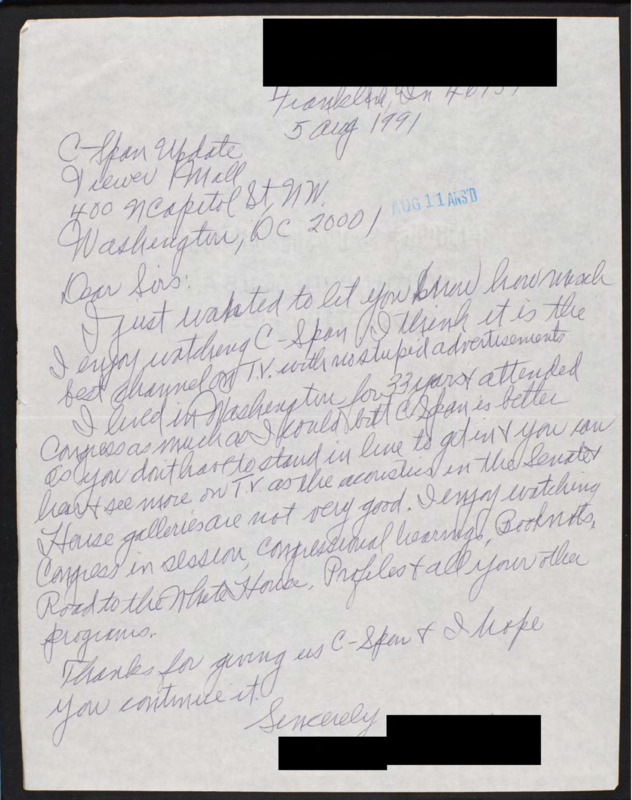 Franklin, In 46131
5 Aug 1991
C-Span Update
Viewer Mail
400 N Capitol St, NW.
Washington, DC 20001
AUG 11 ANS'D
Dear Sirs:
I just wanted to let you know how much
I enjoy watching C-Span. I think it is the
best channel on T.V. with no stupid advertisements
I lived in Washington for 33 years & attended
Congress as much as I could but C-Span is better
as you don't have to stand in line to get in & you can
hear & see more on TV as the acoustics in the Senate &
House galleries are not very good. I enjoy watching
Congress in session, congressional hearings, Booknotes,
Road to the White House, Profiles & all your other
programs.
Thanks for giving us C-Span & I hope
you continue it.
Sincerely